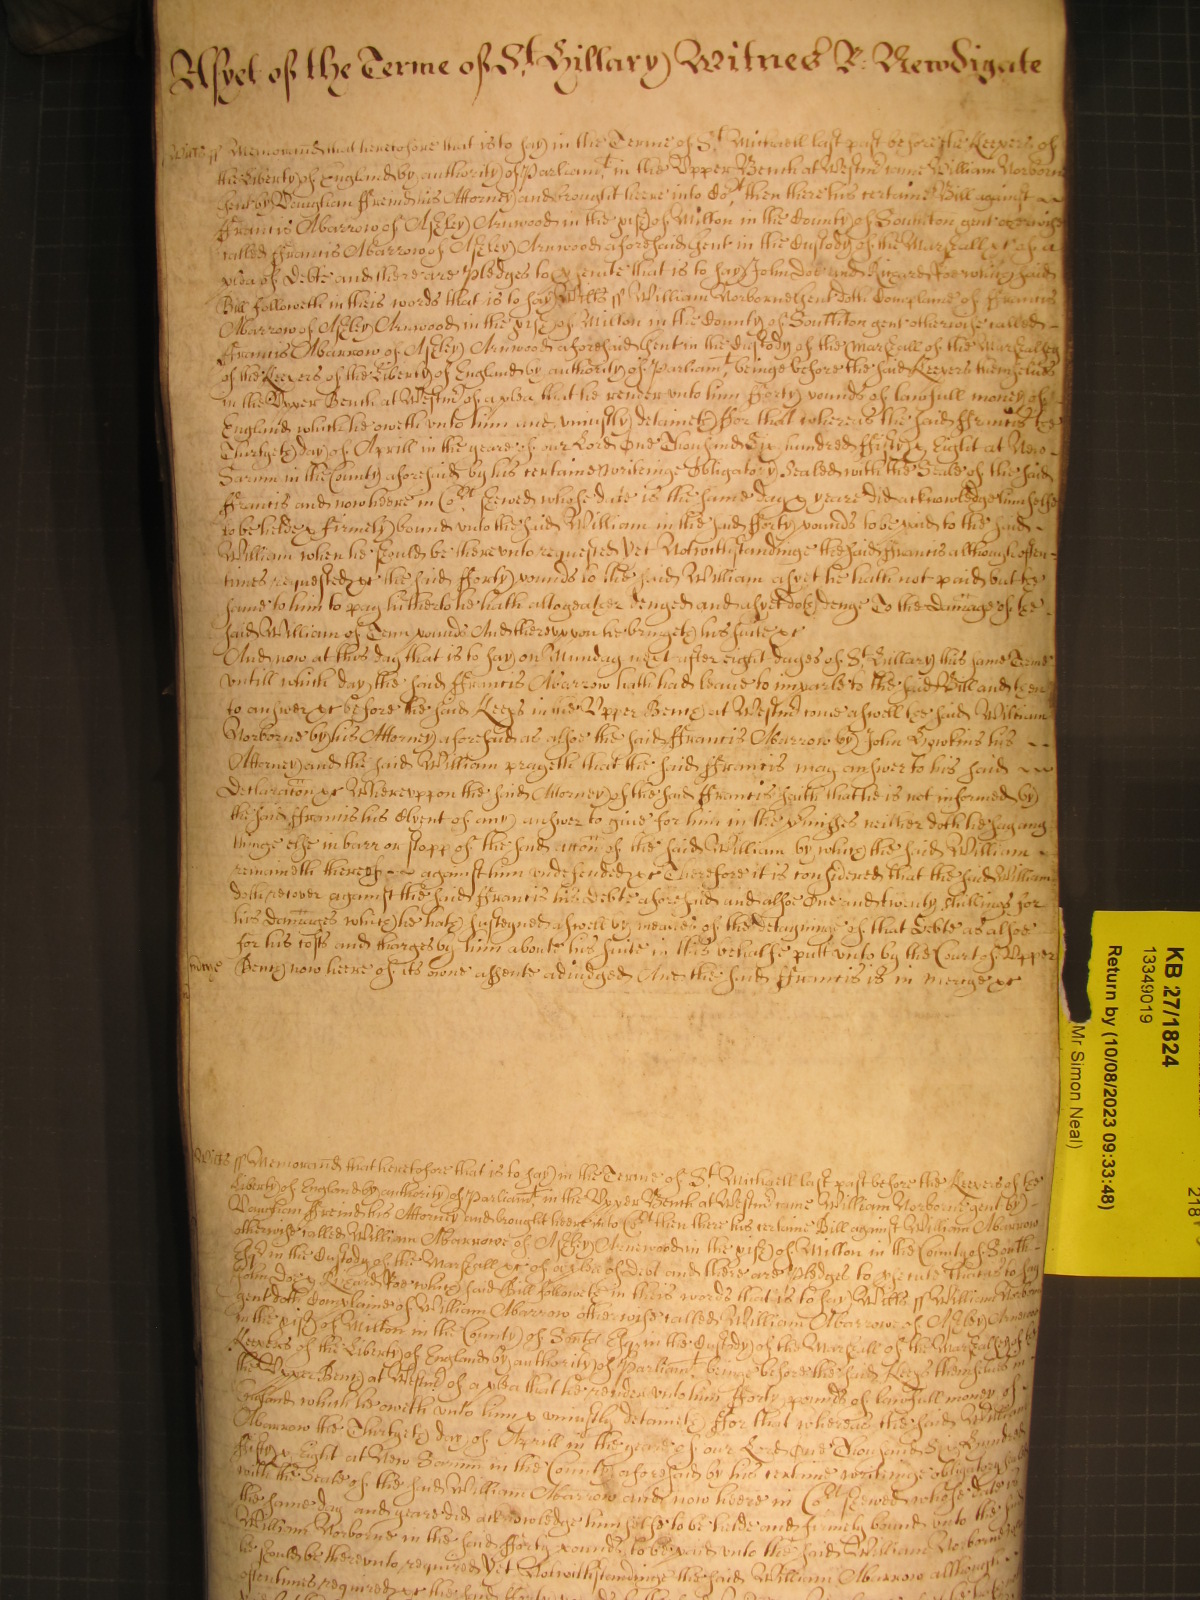 As yet of the Terme of St. Hillary Witnes R: Newdigate
Wilts ss Memorand that heretofore that is to say in the Terme of St. Michaell last past before the Keepers of
the Liberty of England by authority of Parliamt in the Upper Bench at Westmr came William Norborne
gent by Vaughan his Attorney and brought heere into Cort then there his certaine Bill against
ffrancis Abarrow of Asheley Arnwood in the pish of Milton in the County of Southton gent otherwise
called ffrancis Abarrow of Asheley Arnwood aforesaid gent in the Custody of the Marshall &c of a
plea of Debte and there are Pledges to psecute that is to say John Doe and Richard Roe which said
Bill followeth in theis words that is to say Wilts ss William Norborne gent doth Complaine of ffrancis
Abarrow of Asheley Arnwood in the pish of Milton in the County of Southton gent otherwise called
ffrancis Abarrow of Asheley Arnwood aforesaid gent in the Custody of the Marshall of the Marshallsey
of the Keepers of the Liberty of England by authority of Parliamt beinge before the said Keepers themselues
in the Upper Bench at Westmr of a plea that he render unto him fforty pounds of lawfull money of
England which he oweth unto him and uniustly detaineth ffor that whereas the said ffrancis the
Thirtyeth day of Aprill in the yeare of our Lord One Thousand Six hundred ffifty & Eight at New
Sarum in the County aforesaid by his certaine writeinge Obligatory Sealed with the Seale of the said
ffrancis and now heere in Cort shewed whose date is the same day & yeare did acknowledge himselfe
to be helde & firmely bound unto the said William in the said fforty pounds to be paid to the said
William when he should be thereunto requested Yet Notwithstandinge the said ffrancis although often
times requested &c the said fforty pounds to the said William as yet he hath not paid but the
same to him to pay hitherto he hath altogeather denyed and as yet doth denye To the damage of the
said William of Tenn pounds And thereuppon he bringeth his suite &c
And now at this day that is to say on Munday next after eight dayes of St. Hillary this same Terme
untill which day the said ffrancis Abarrow hath had leave to imparle to the said Bill and then
to answer &c before the said Keeps in the Upper Bench at Westmr came aswell the said William
Norborne by his Attorney aforesaid as alsoe the said ffrancis Abarrow by John Hawkins his
Attorney and the said William prayeth that the said ffrancis may answer to his said
Declaration &c Whereuppon the said Attorney of the said ffrancis saith that he is not informed by
the said ffrancis his Clyent of any answer to give for him in the pmisses neither doth he say any
thinge else in barr or stopp of the said accon of the said William by which the said William
remaineth thereof against him undefended &c Therefore it is considered that the said William
doth recover against the said ffrancis his Debte aforesaid and alsoe One and twenty shillings for
his damages which he hath susteyned aswell by meanes of the detayninge of that Debte as alsoe
for his costs and charges by him aboute his suite in this behalfe putt unto by the Court of Upper
Bench now heere of its owne assente adiudged And the said ffrancis is in mercye &c
mercye
Wilts ss Memorand that heretofore that is to say in the Terme of St. Michaell last past before the Keepers of the
Liberty of England by authority of Parliamt in the Upper Bench at Westmr came William Norborne gent by
Vaughan his Attorney and brought heere into Cort then there his certaine Bill against William Abarrow
otherwise called William Abarrowe of Asheley Arnewood in the pish of Milton in the County of South
in the Custody of the Marshall &c of a plea of debt and there are Pledges to psecute that is to say
John Doe & Richard Roe which said Bill followeth in theis words that is to say Wilts ss William Norborne
gent doth Complaine of William Abarrow otherwise called William Abarrowe of Asheley Arnewood
in the pish of Milton in the County of in the Custody of the Marshall of the Marshallsey of the
Keepers of the Liberty of England by authority of Parliamt beinge before the said Keeps themselues in
the Upper Bench at Westmr of a plea that he render unto him fforty pounds of lawfull money of
England which he oweth unto him & uniustly detaineth ffor that whereas the said William
Abarrow the Thirtyeth day of Aprill in the yeare of our Lord One Thousand Six hundred
ffifty & Eight at New Sarum in the County aforesaid by his certaine writeinge obligatory
with the Seale of the said William Abarrow and now heere in Cort shewed whose date is
the same day and yeare did acknowledge himselfe to be helde and firmely bound unto the said
William Norborne in the said fforty pounds to be paid unto the said William Norborne
he should be thereunto required Yet Notwithstandinge the said William Abarrow although
oftentimes required &c the said fforty
KB 27/1824
13349019
Return by (10/08/2023 09:33:48)
Mr Simon Neal)